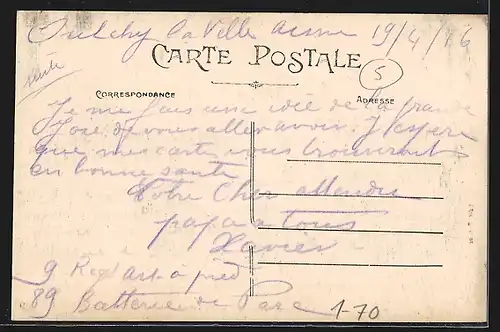 Oulchy La Ville Aisne 19/4/16
suite
CARTE POSTALE
5
CORRESPONDANCE
ADRESSE
Je me fais une idée de la grande
Joie que vous allez avoir. J'espère
que mes carte vous trouveront
en bonne santé
Votre Cher attendu
papa a tous
Xavier
9 Regt Art à pied
89 Batterie de Parc
1-70